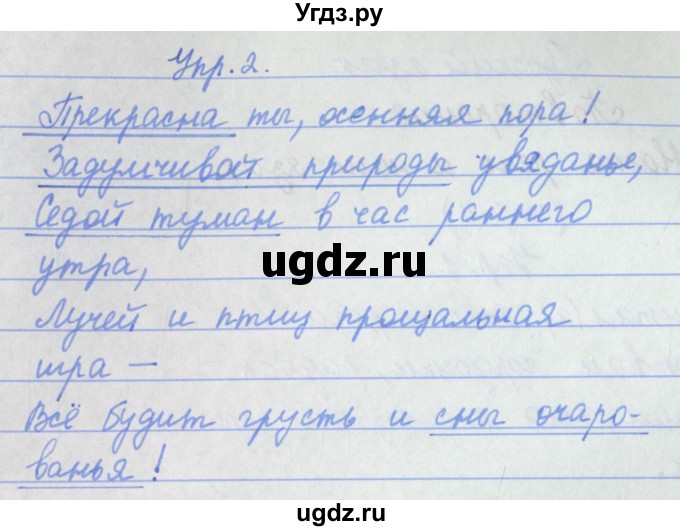 Угдз.ру
Упр. 2.
Прекрасна ты, осенняя пора!
Задумчивой природы увяданье,
Седой туман в час раннего
утра,
Лучей и птиц прощальная
игра —
Всё будит грусть и сны очаро-
ванья!
ugdz.ru
ugdz.ru